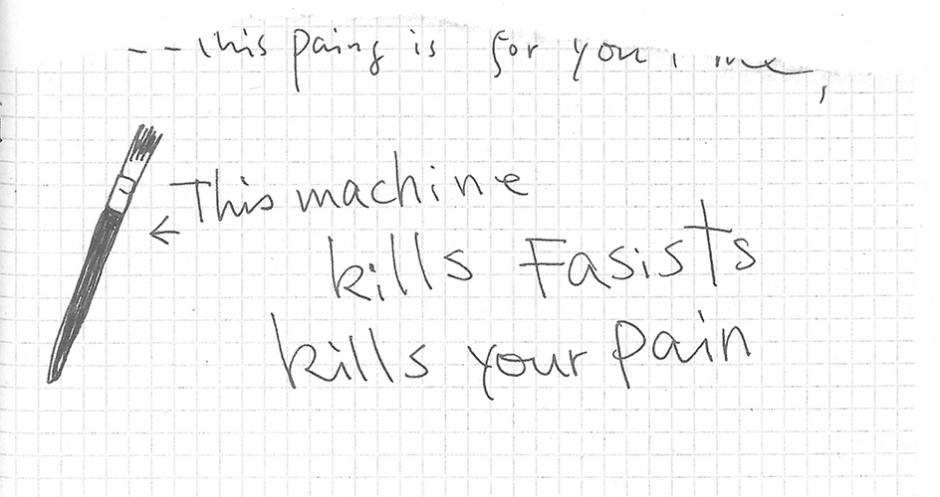 -- This paing is for you, me,
← This machine
kills Fasists
kills your pain